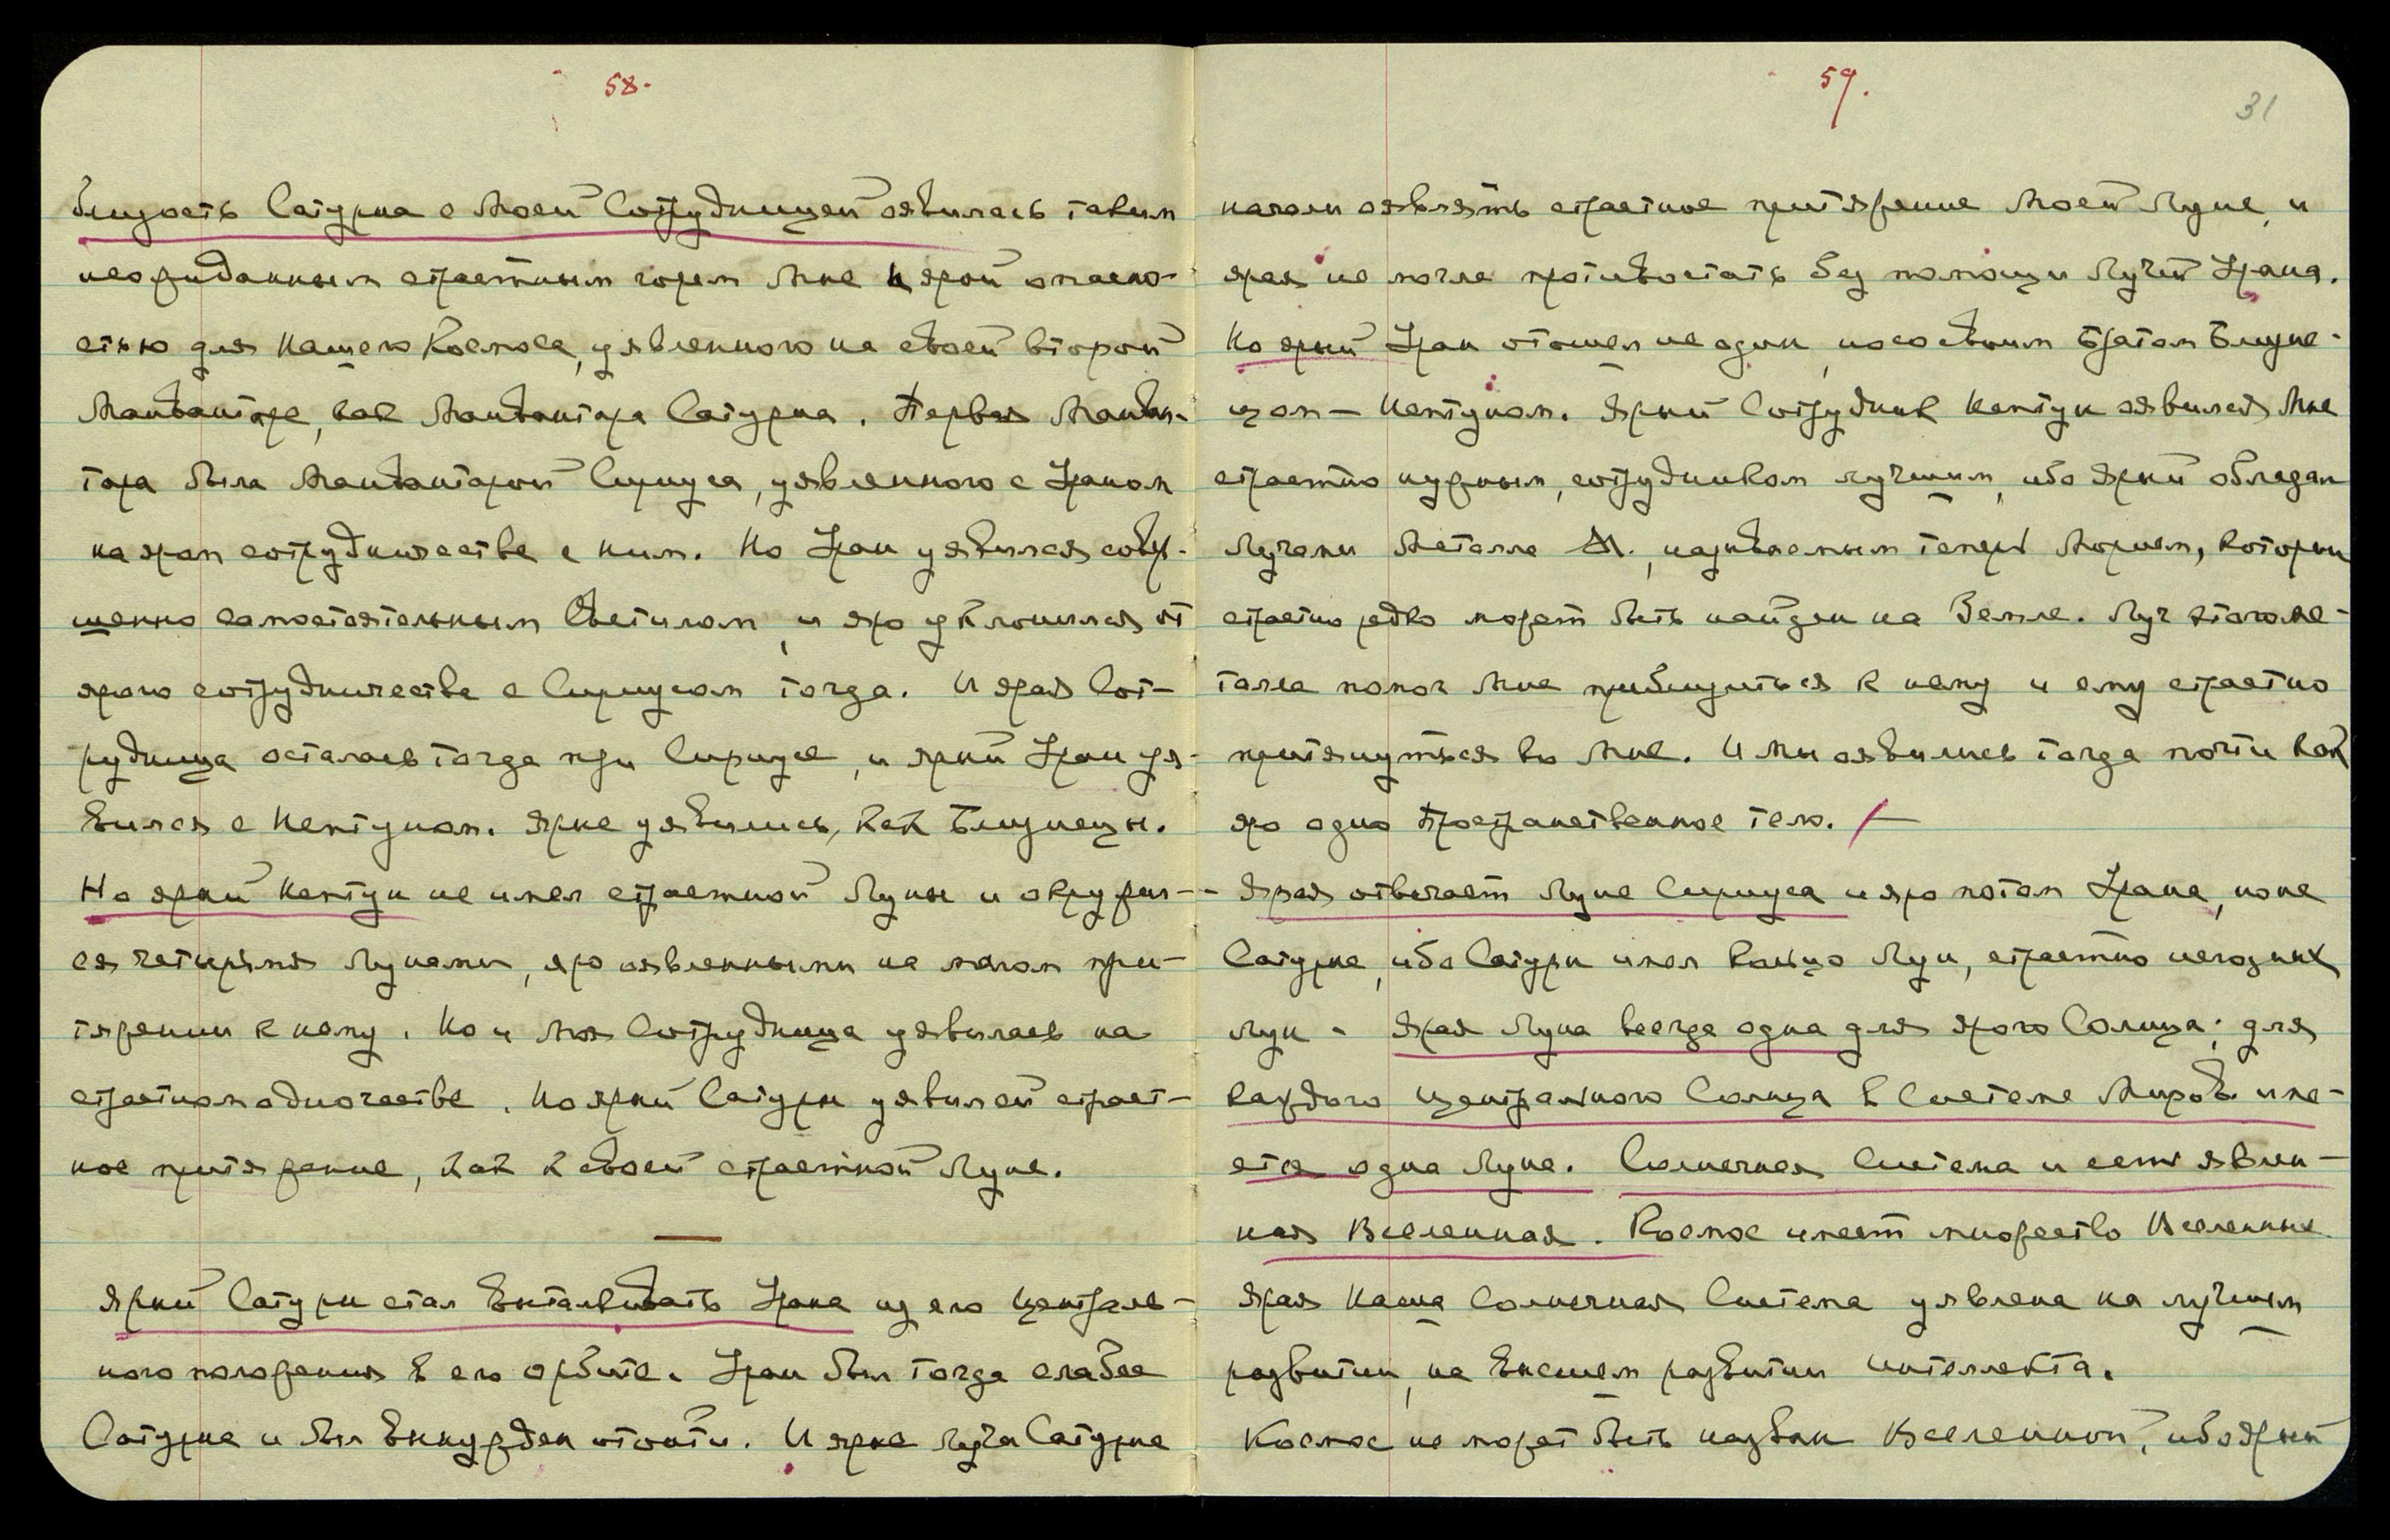 58.
близость Сатурна с Моей Сотрудницей оявилась таким
неожиданным страстным горем Мне и ярой опасно-
стью для Нашего Космоса, уявленного на своей второй
Манвантаре, как Манвантара Сатурна. Первая Манван-
тара была Манвантарой Сириуса, уявленного с Ураном
на яром сотрудничестве с ним. Но Уран уявился совер-
шенно самостоятельным Светилом, и яро уклонился от
ярого сотрудничества с Сириусом тогда. И ярая Сот-
рудница осталась тогда при Сириусе, и ярый Уран уя-
вился с Нептуном. Ярые уявились, как Близнецы.
Но ярый Нептун не имел страстной Луны и окружил-
ся четырьмя Лунами, яро оявленными на малом при-
тяжении к нему. Но и Моя Сотрудница уявилась на
страстном одиночестве. Но ярый Сатурн уявил ей страст-
ное притяжение, как к своей страстной Луне.
Ярый Сатурн стал выталкивать Урана из его централь-
ного положения в его орбите. Уран был тогда слабее
Сатурна и был вынужден отойти. И ярые Лучи Сатурна
59.
31
начали оявлять страстное притяжение Моей Луне, и
ярая не могла противостать без помощи Лучей Урана.
Но ярый Уран отошел не один, но со своим Братом Близне-
цом — Нептуном. Ярый Сотрудник Нептун оявился Мне
страстно нужным, сотрудником лучшим, ибо Ярый обладал
Лучами Металла М., называемым теперь Морием, который
страстно редко может быть найден на Земле. Луч этого ме-
талла помог Мне приблизиться к нему и ему страстно
притянуться ко Мне. И мы оявились тогда почти как
яро одно Пространственное тело.
Ярая отвечает Луне Сириуса и яро потом Урана, но не
Сатурна, ибо Сатурн имел Кольцо Лун, страстно негодных
лун. Ярая Луна всегда одна для ярого Солнца; для
каждого центрального Солнца в Системе Миров име-
ется одна Луна. Солнечная Система и есть явлен-
ная Вселенная. Космос имеет множество Вселенных.
Ярая Наша Солнечная Система уявлена на лучшем
развитии, на высшем развитии интеллекта.
Космос не может быть назван Вселенной, ибо ярый